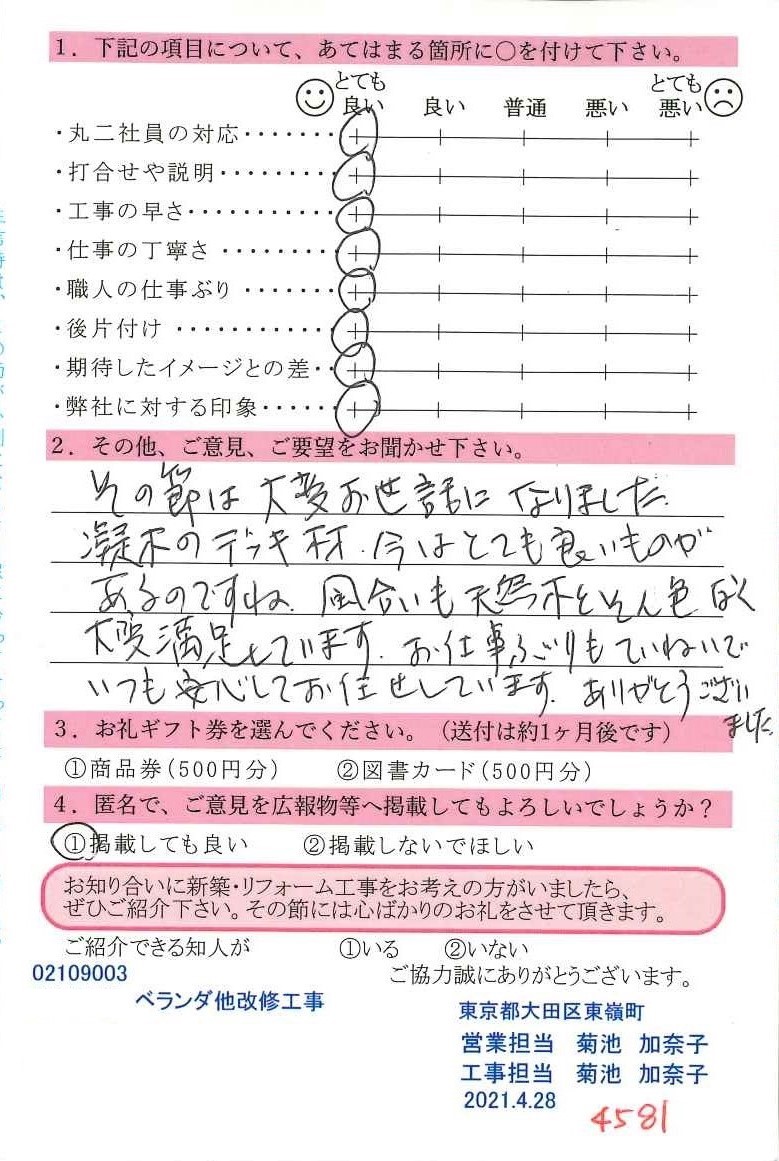 1．下記の項目について、あてはまる箇所に○を付けて下さい。
とても良い 良い 普通 悪い とても悪い
・丸二社員の対応・・・・・・・
・打合せや説明・・・・・・・・・
・工事の早さ・・・・・・・・・・・
・仕事の丁寧さ・・・・・・・・・
・職人の仕事ぶり・・・・・・・
・後片付け・・・・・・・・・・・・
・期待したイメージとの差・・
・弊社に対する印象・・・・・・
2．その他、ご意見、ご要望をお聞かせ下さい。
その節は大変お世話になりました.
凝木のデッキ材.今はとても良いものが
あるのですね.風合いも天然木とそん色なく
大変満足しています.お仕事ぶりもていねいで
いつも安心してお任せしています.ありがとうござい
ました.
3．お礼ギフト券を選んでください。（送付は約1ヶ月後です）
①商品券（500円分） ②図書カード（500円分）
4．匿名で、ご意見を広報物等へ掲載してもよろしいでしょうか？
①掲載しても良い ②掲載しないでほしい
お知り合いに新築・リフォーム工事をお考えの方がいましたら、
ぜひご紹介下さい。その節には心ばかりのお礼をさせて頂きます。
ご紹介できる知人が ①いる ②いない
02109003
ご協力誠にありがとうございます。
ベランダ他改修工事
東京都大田区東嶺町
営業担当 菊池 加奈子
工事担当 菊池 加奈子
2021.4.28
4581